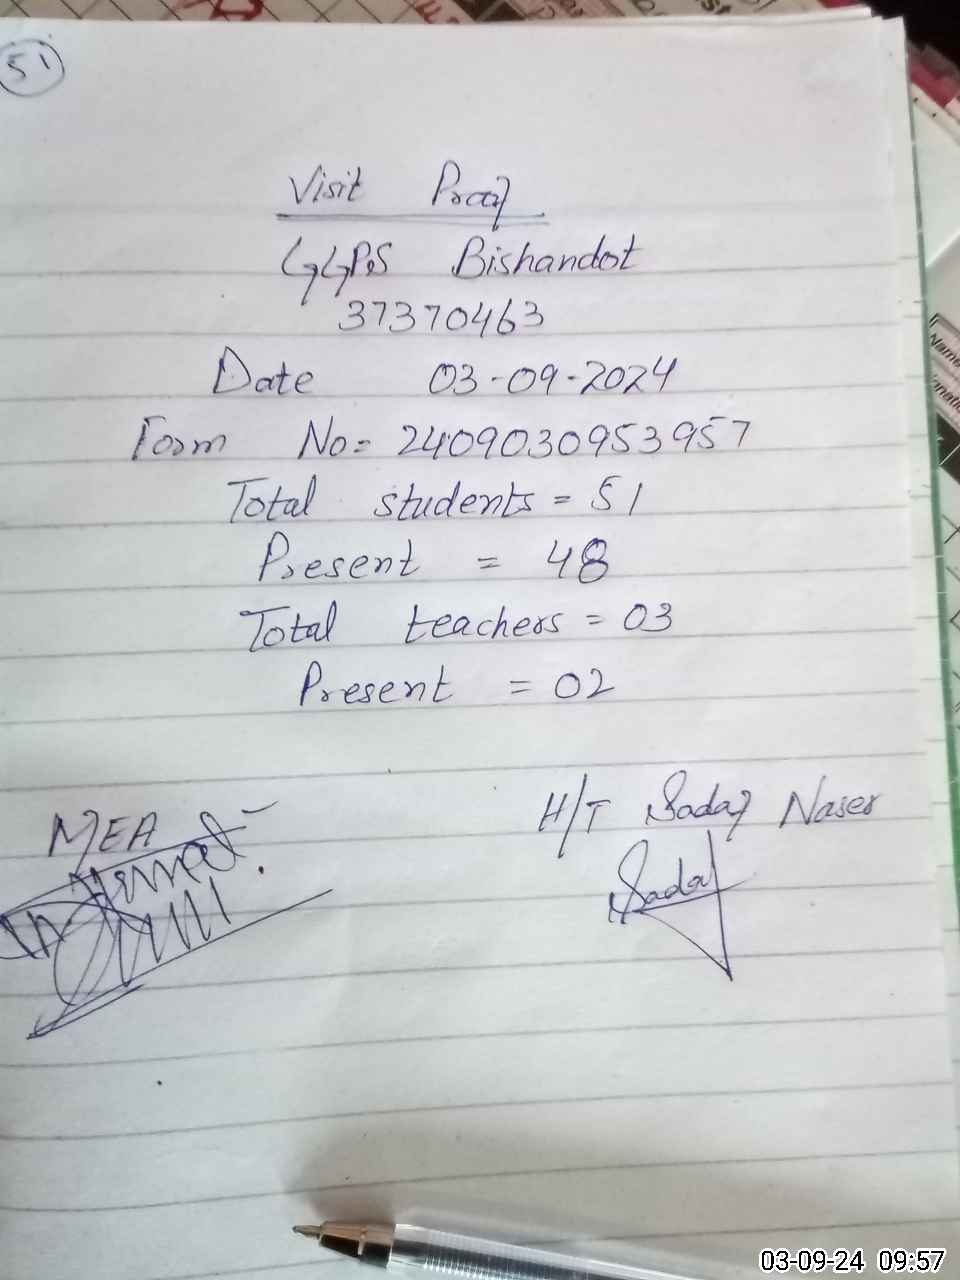 51
Visit Proof
GGPS Bishandot
37370463
Date 03-09-2024
Form No= 2409030953957
Total students = 51
Present = 48
Total teachers = 03
Present = 02
MEA
H/T Sadaf Naser
Sadaf
Name
03-09-24 09:57